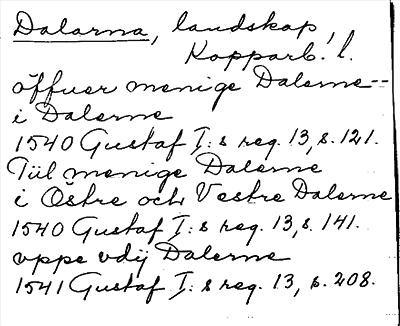 Dalarna, landskap,
Kopparb. l.
öffuer menige Dalerne--
i Dalerne
1540 Gustaf I:s reg. 13, s. 121.
Tiil menige Dalerne
i Östre och Vestre Dalerne
1540 Gustaf I:s reg. 13, s. 141.
vppe vdij Dalerne
1541 Gustaf I:s reg. 13, s. 208.